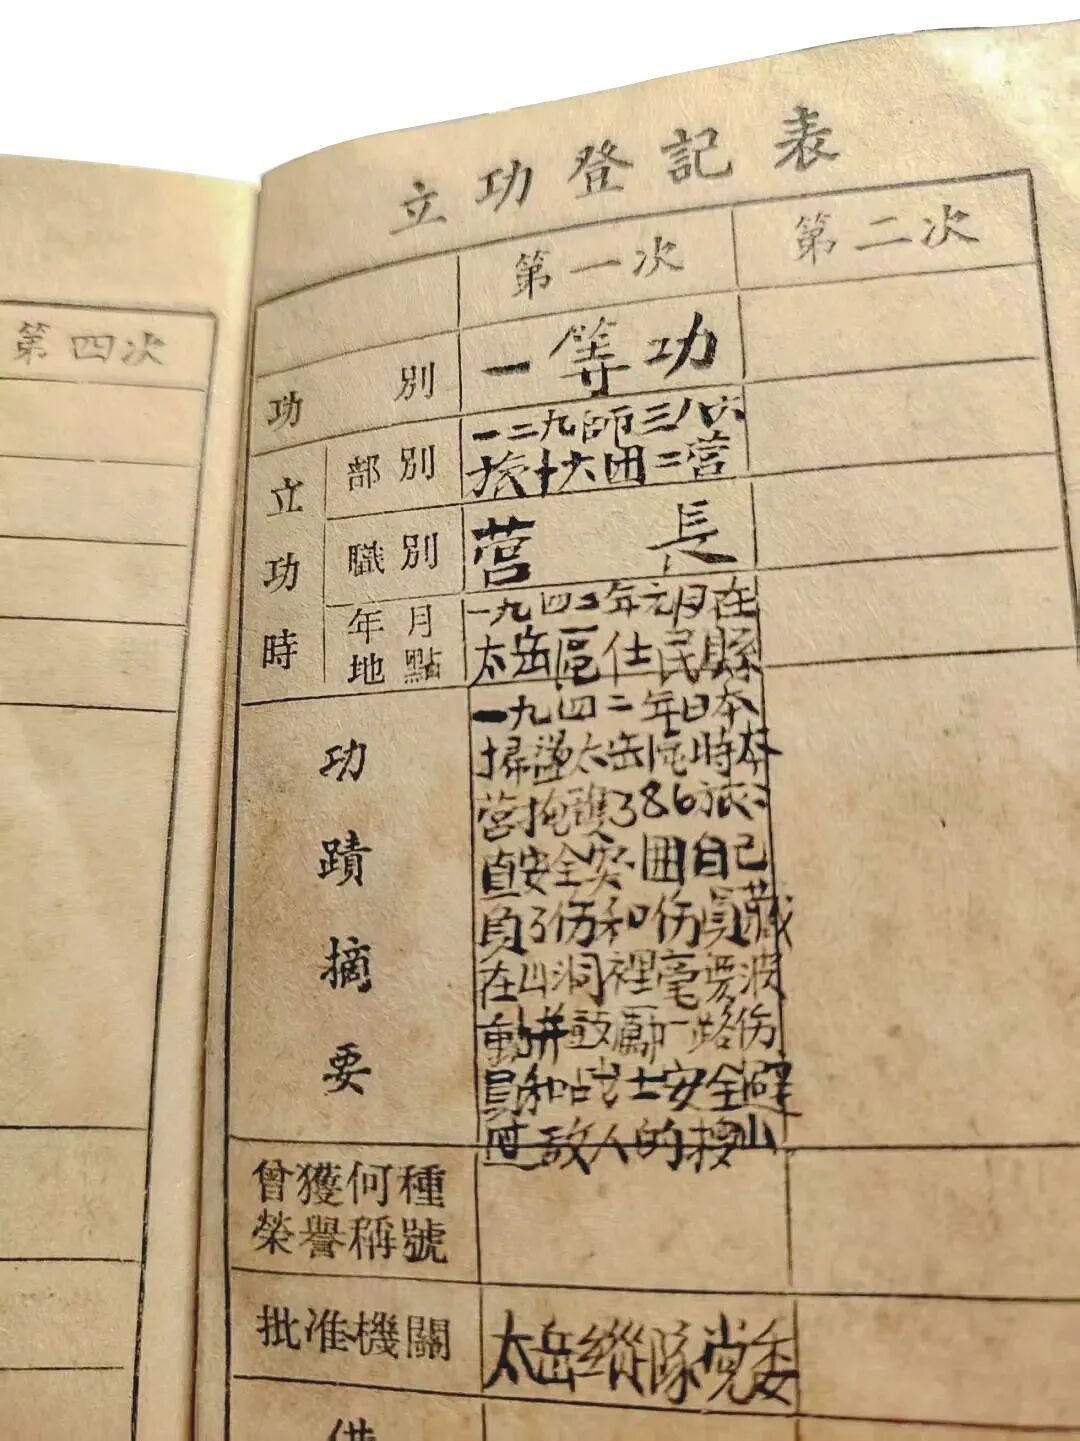 立功登記表
第四次
第一次
第二次
功別
一等功
立功時
部別
一二九師三八六
旅十六团二营
職別
营長
年月
地點
一九四二年元月在
太岳區仕民縣
功蹟摘要
一九四二年日本
掃盪太岳區時本
营掩護了386旅
直安全突围自己
負了伤和伤員藏
在山洞裡毫没
動拼鼓勵一路伤
員和战士安全避
过敌人的搜山
曾獲何種
榮譽稱號
批准機關
太岳纵隊党委
備